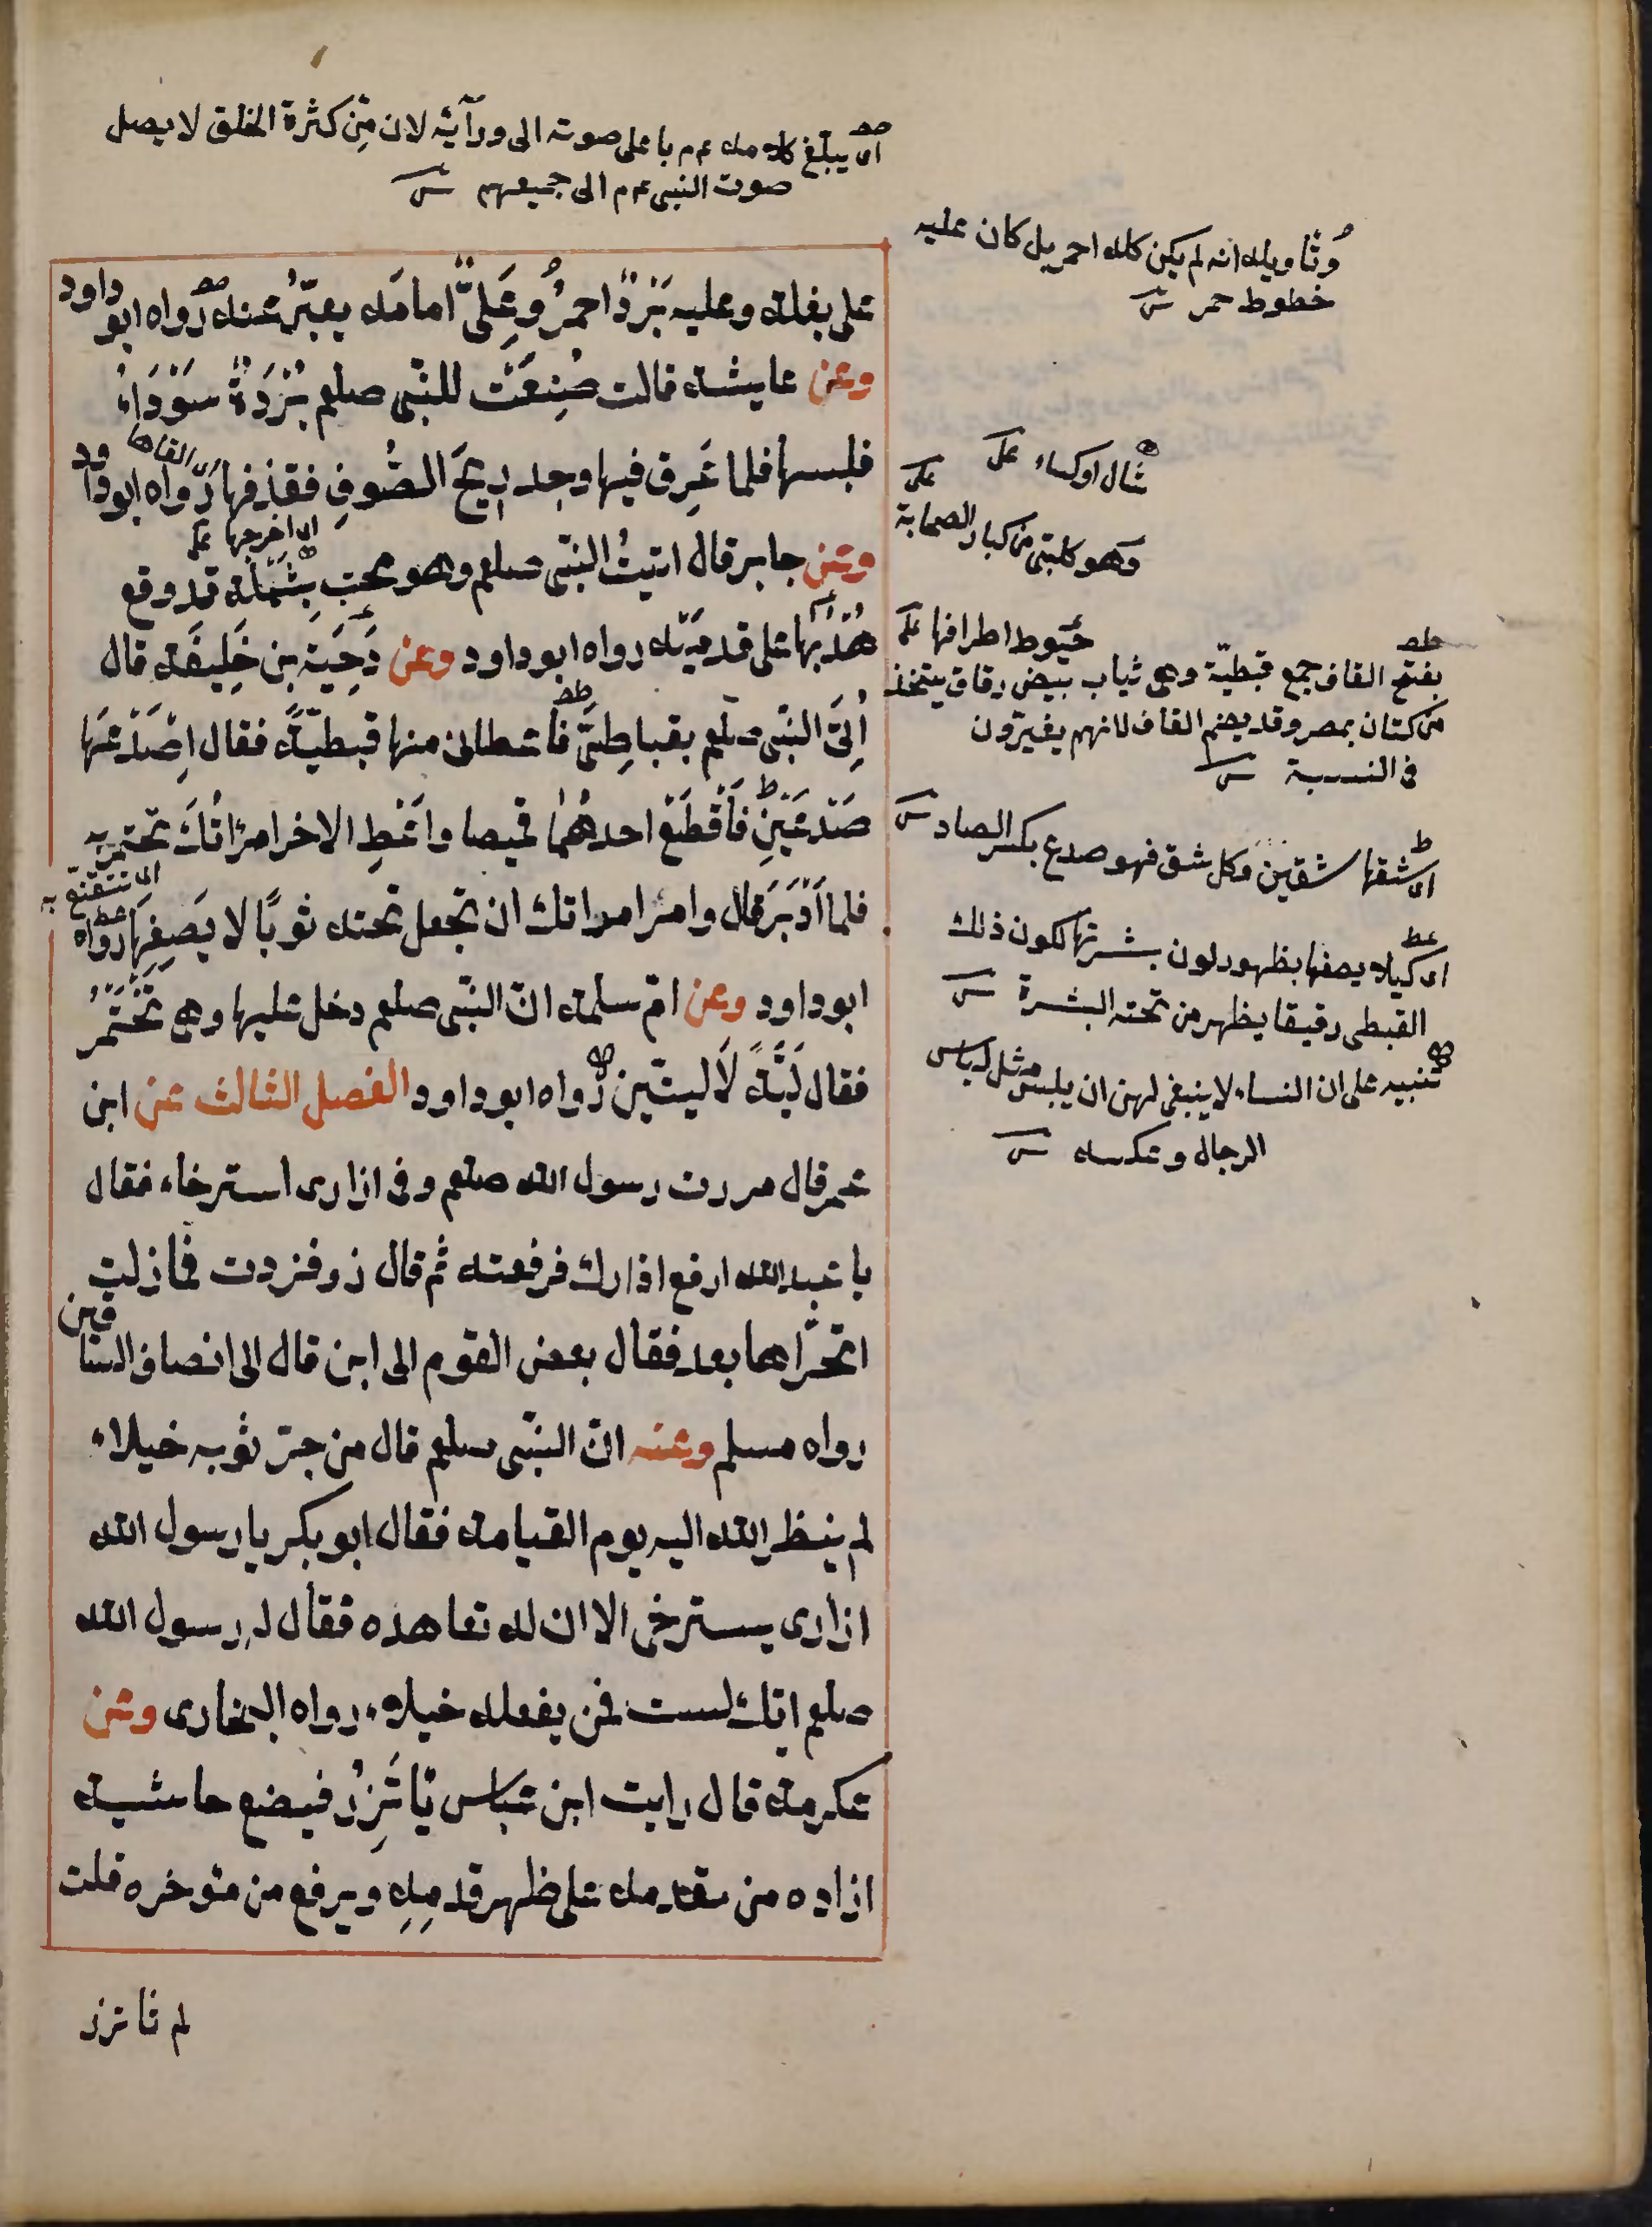 اى يبلغ كلامه عم باعلى صوته الى ورآئه لان من كثرة الخلق لا يصل
صوت النبى عم الى جميعهم
على بغلة وعليه بُرْدٌ احمرُ وعَلِىٌّ امامَه يعبّرُ عنه رواه ابو داود
وعن عايشة قالت صُنِعَتْ للنّبى صلعم بُرْدَةٌ سَوْدَاءُ
فلبسها فلما عَرِق فيها وجد رِيحَ الصُّوفِ فقذفها رواه ابو داود
اى القاها
اى اخرجها
وعن جابر قال اتيتُ النبّى صلعم وهو محتبٍ بِشَمْلَة قد وقع
هُدْبُها على قدمَيْه رواه ابو داود وعن دَحِيَة بن خَلِيفَة قال
اُتِىَ النبّى صلعم بقباطِىَّ فاعطانى منها قبطيّةً فقال اِصْدَعْها
صَدْعَيْنِ فَاقْطَعْ احدهُمٰا قميصا واَعْطِ الاخر امرَاَتَكَ تختمر به
اى تتقنّع به
فلما اَدْبَرَ قال وامر امراتك ان تجعل تحته ثوبًا لا يَصِفِهَا رواه
ابو داود وعن امّ سلمة انّ النبّى صلعم دخل عليها وهى تَخْتَمِرُ
فقال لَيَّةً لَا ليتّين رواه ابو داود الفصل الثالث عن ابن
عمر قال مررت رسول الله صلعم وفى ازارى استرخاء فقال
يا عبد الله ارفع ازارك فرفعته ثم قال زد فزدت فما زلت
اتحرّاها بعد فقال بعض القوم الى اين قال الى انصاف الساقين
رواه مسلم وعنه انّ النبّى صلعم قال من جرّ ثوبه خيلاء
لم ينظر الله اليه يوم القيامة فقال ابو بكر يا رسول الله
ازارى يسترخى الا ان له تعاهده فقال له رسول الله
صلعم انك لست ممن يفعله خيلاء رواه البخارى وعن
عكرمة قال رايت ابن عباس يَاتَزِرُ فيضع حاشية
ازاره من مقدمه على ظهر قدمِهِ ويرفع من مئوخره قلت
لم تاتزر
وتاويله انه لم يكن كله احمر بل كان عليه
خطوط حمر
شال او كساء
وهو كلبّى من كبار الصحابة
خيوط اطرافها
بفتح القاف جمع قبطيّة وهى ثياب بيض رقاق يتخذ
من كتان بمصر وقد يضم القاف لانهم يغيّرون
فى النسبة
اى شقها شقين وكل شق فهو صدع بكسر الصاد
اى كيلا يصفها بظهور لون بشرتها لكون ذلك
القبطى رقيقا يظهر من تحته البشرة
تنبيه على ان النساء لا ينبغى لهن ان يلبس مثل لباس
الرجال وعكسه